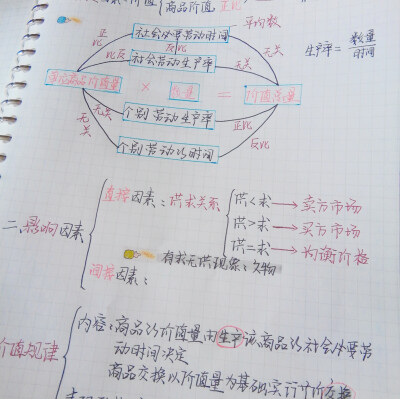 商品价值 正比
平均数
社会必要劳动时间
正比
反比
无关
生产率=数量/时间
反比
社会劳动生产率
无关
单位商品价值量 × 数量 = 价值总量
无关
个别劳动生产率
正比
无关
个别劳动时间
反比
直接因素:供求关系
供<求→卖方市场
供>求→买方市场
供=求→均衡价格
二、影响因素
有求无供现象:文物
间接因素:
内容:商品的价值量由生产该商品的社会必要劳
动时间决定
价值规律
商品交换以价值量为基础实行等价交换